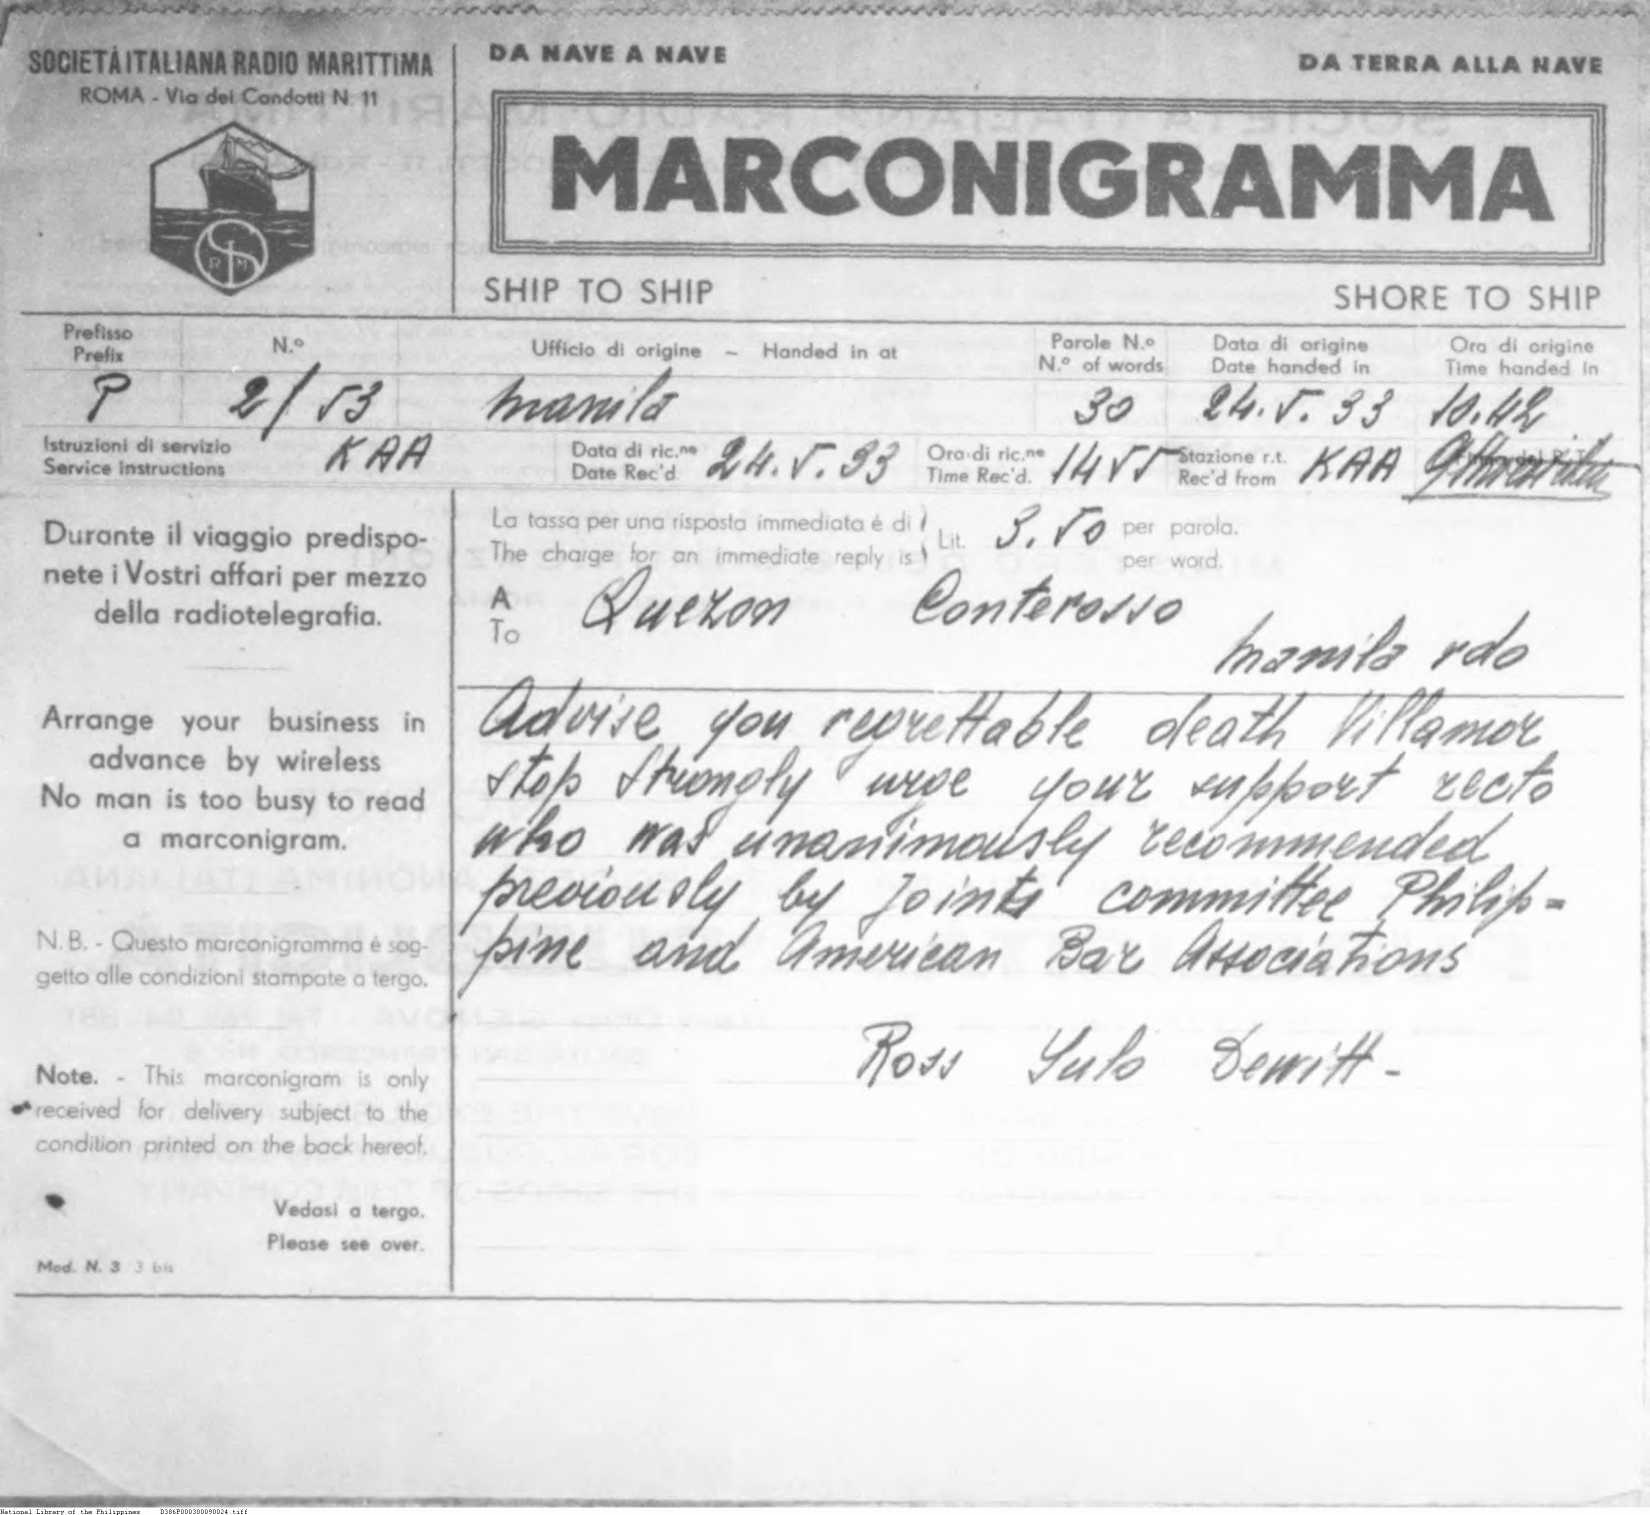 SOCIETÀ ITALIANA RADIO MARITTIMA
ROMA - Via dei Condotti N 11
R M
DA NAVE A NAVE
DA TERRA ALLA NAVE
MARCONIGRAMMA
SHIP TO SHIP
SHORE TO SHIP
Prefisso
Prefix
P
N.º
2/53
Ufficio di origine - Handed in at
Manila
Parole N.º
N.º of words
30
Data di origine
Date handed in
24.5.33
Ora di origine
Time handed in
10.42
Istruzioni di servizio
Service instructions
KAA
Data di ric.ne
Date Rec'd.
24.5.33
Ora di ric.ne
Time Rec'd.
1455
Stazione r.t.
Rec'd from
KAA
Durante il viaggio predispo-
nete i Vostri affari per mezzo
della radiotelegrafia.
Arrange your business in
advance by wireless
No man is too busy to read
a marconigram.
N.B. - Questo marconigramma è sog-
getto alle condizioni stampate a tergo.
Note. - This marconigram is only
received for delivery subject to the
condition printed on the back hereof.
Vedasi a tergo.
Please see over.
Mod. N. 3 3 bis
La tassa per una risposta immediata è di
The charge for an immediate reply is
Lit. 3.50 per parola.
per word.
A
To
Quezon Conterosso
Manila rdo
Advise you regrettable death Villamor
stop strongly urge your support recto
who was unanimously recommended
previously by joints committee Philip-
pine and American Bar Associations
Ross Sulo Dewitt -
National Library of the Philippines D386P000300090024.tiff